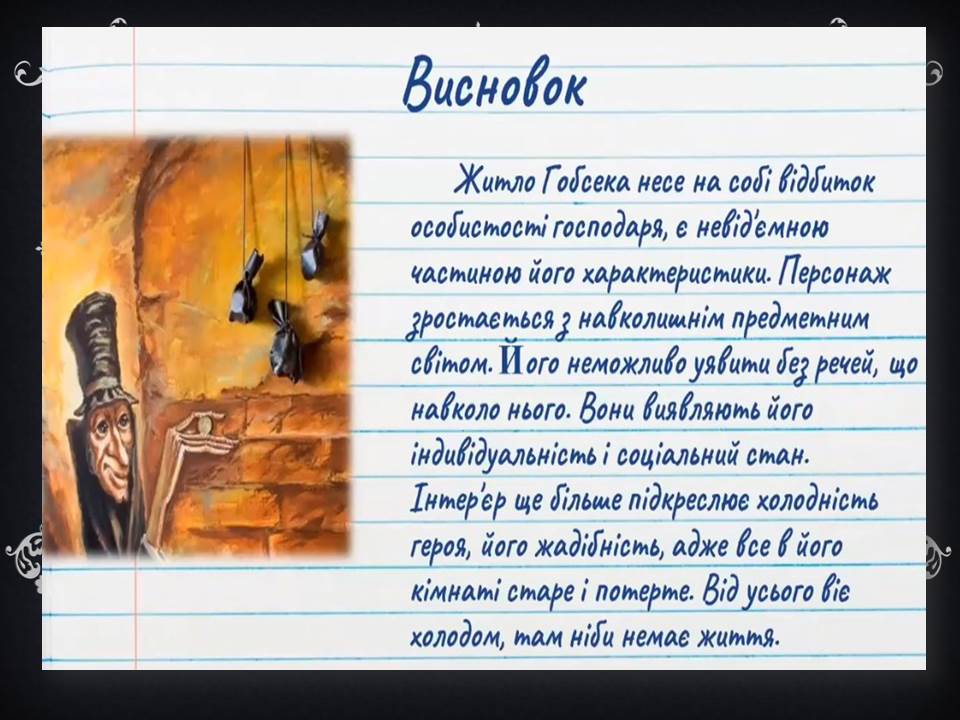 Висновок
Житло Гобсека несе на собі відбиток
особистості господаря, є невід'ємною
частиною його характеристики. Персонаж
зростається з навколишнім предметним
світом. Його неможливо уявити без речей, що
навколо нього. Вони виявляють його
індивідуальність і соціальний стан.
Інтер'єр ще більше підкреслює холодність
героя, його жадібність, адже все в його
кімнаті старе і потерте. Від усього віє
холодом, там ніби немає життя.